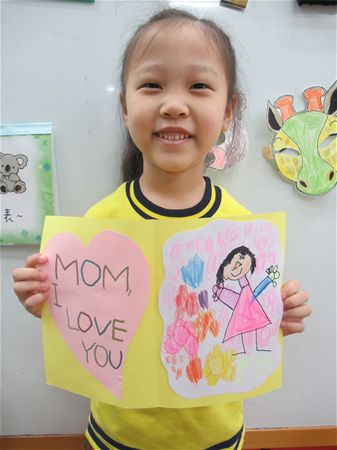 表~
MOM,
I LOVE
YOU